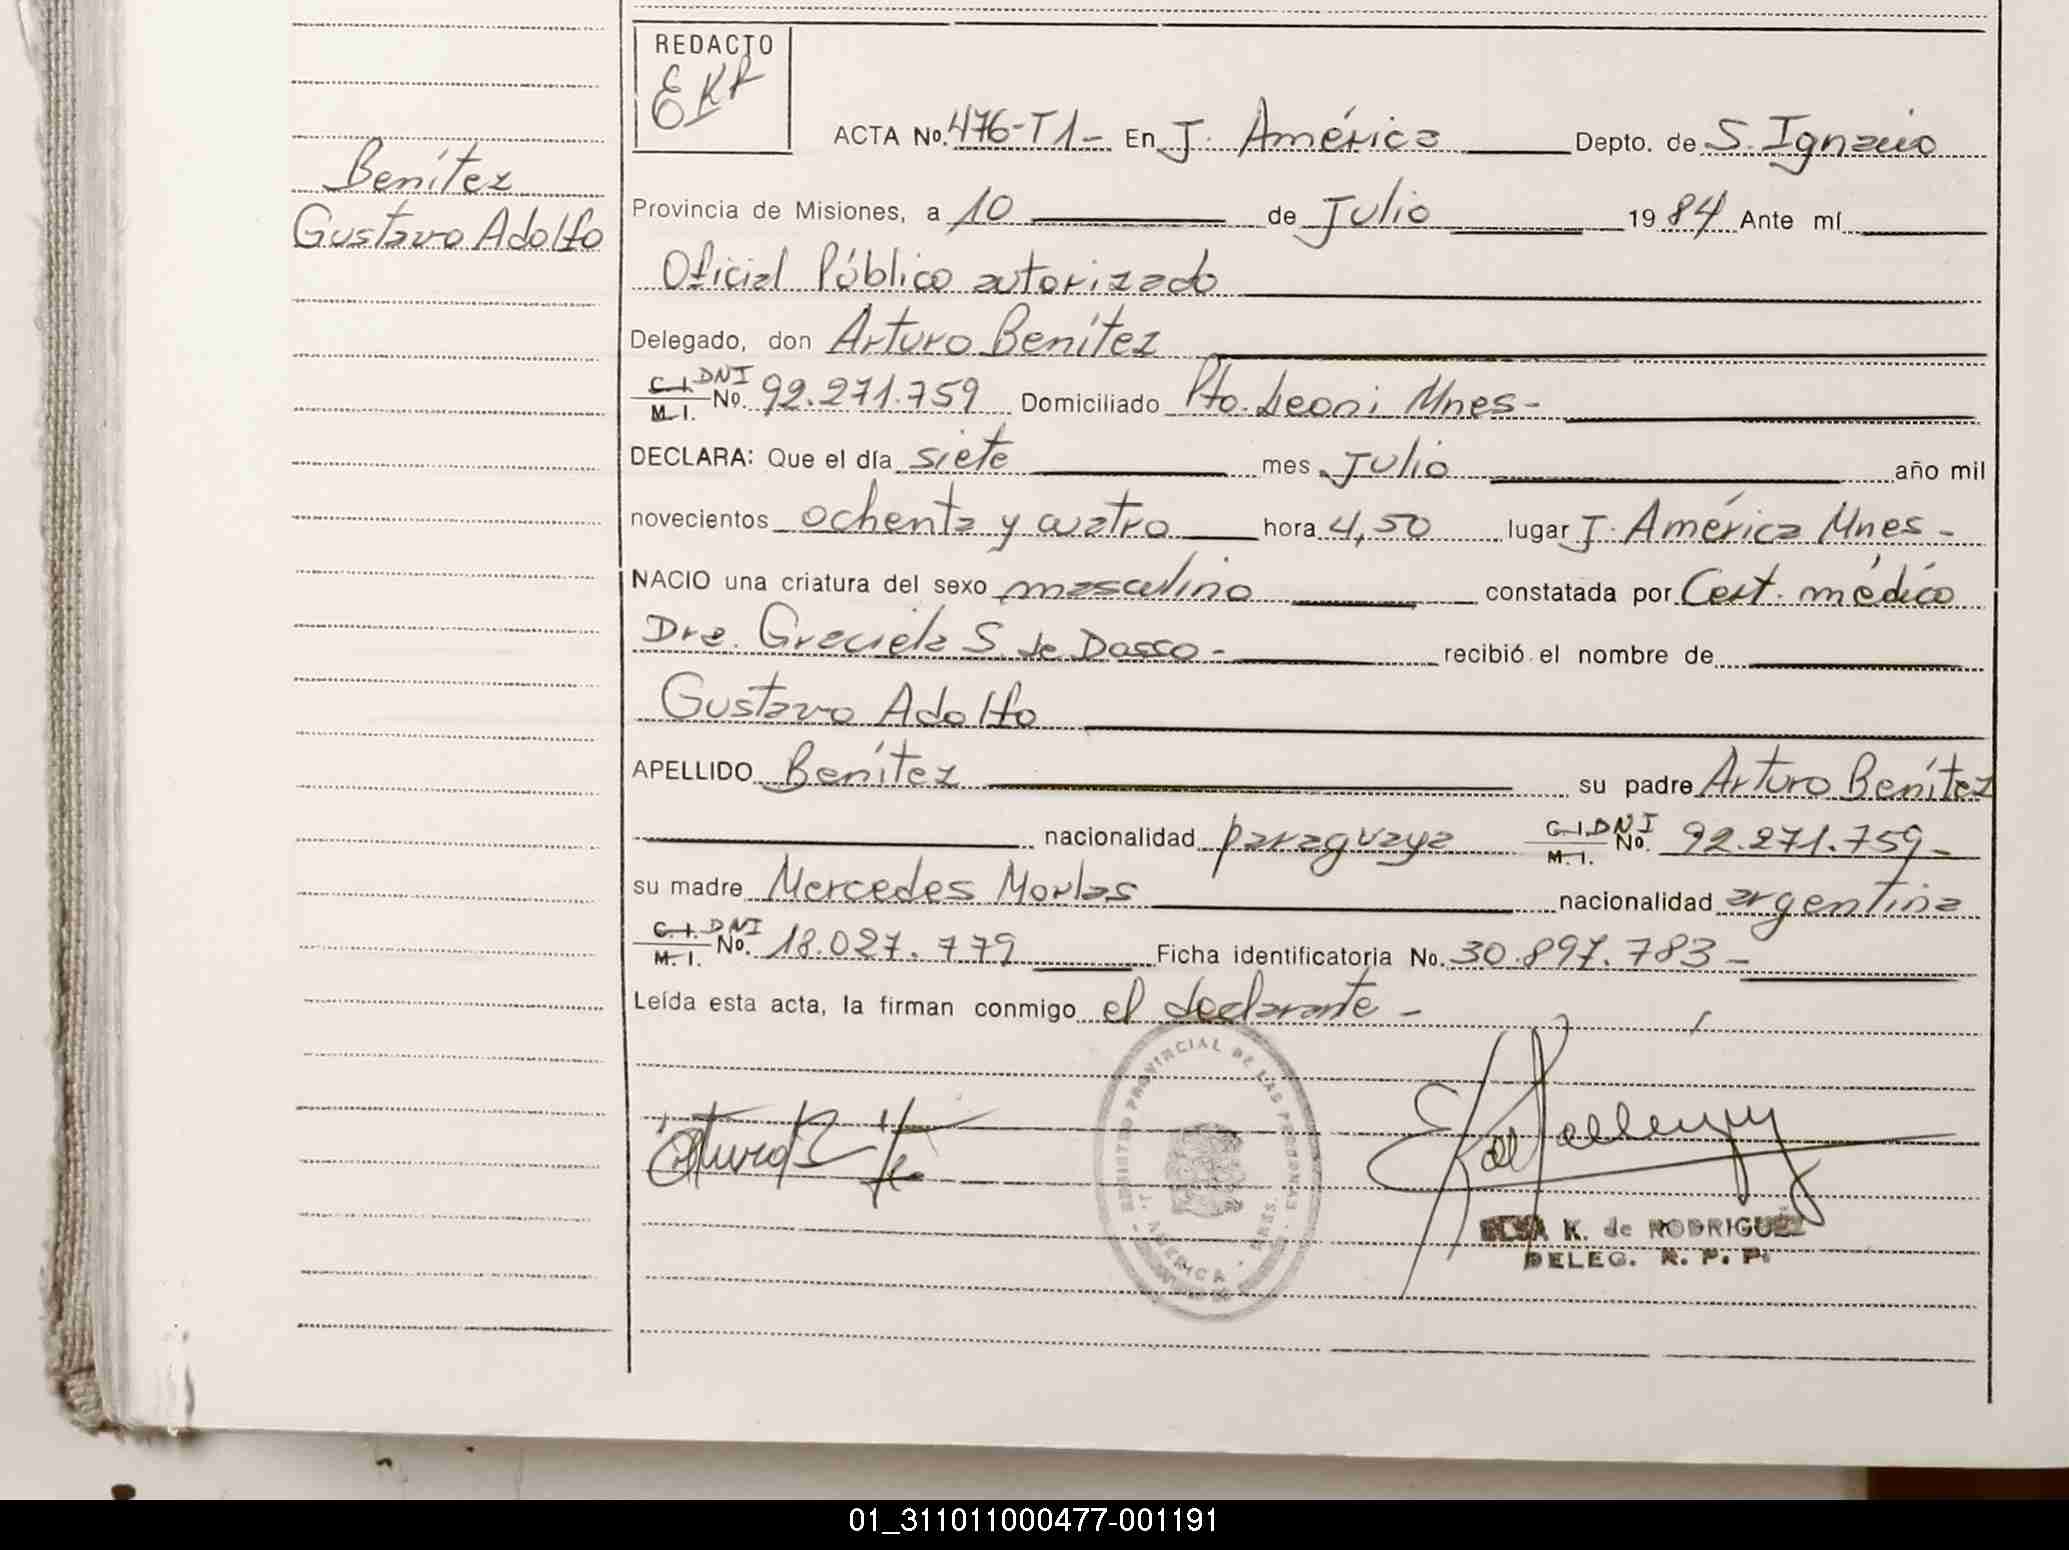 REDACTO
EKR
ACTA No. 476-T1- En J. América Depto. de S. Ignacio
Benítez
Gustavo Adolfo
Provincia de Misiones, a 10 de Julio 1984 Ante mí
Oficial Público autorizado
Delegado, don Arturo Benítez
C.I. DNI
M.I. No. 92.271.759 Domiciliado Pto. Leoni Mnes-
DECLARA: Que el día siete mes Julio año mil
novecientos ochenta y cuatro hora 4,50 lugar J. América Mnes-
NACIO una criatura del sexo masculino constatada por Cert. médico
Dra. Graciela S. de Dasso- recibió el nombre de
Gustavo Adolfo
APELLIDO Benítez su padre Arturo Benítez
nacionalidad paraguaya C.I. DNI M.I. No. 92.271.759-
su madre Mercedes Morlas nacionalidad argentina
C.I. DNI
M.I. No. 18.027.779 Ficha identificatoria No. 30.897.783-
Leída esta acta, la firman conmigo el declarante-
REGISTRO PROVINCIAL DE LAS PERSONAS
J. AMERICA MNES.
ELSA K. de RODRIGUEZ
DELEG. R. P. P.
01_311011000477-001191